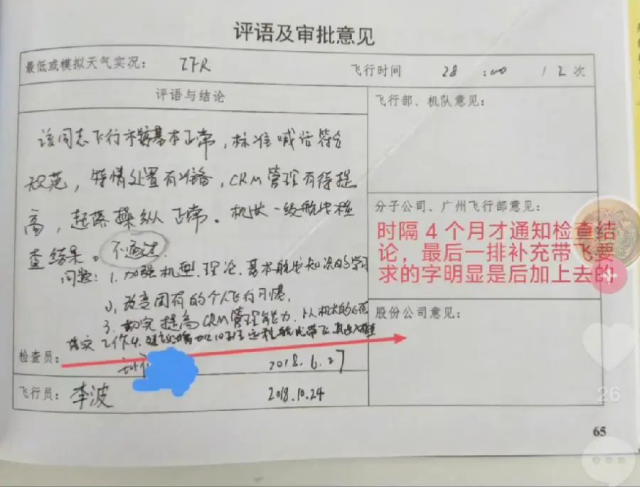 评语及审批意见
最低或模拟天气实况： IFR 飞行时间 28 :00 12次
评语与结论
飞行部、机队意见：
该同志飞行基本正常，标准喊话符合
规范，特情处置有准备，CRM管理有待提
高，起落操纵正常。机长一级航线检
查结果。不通过
问题：1.加强机型理论、基本航线知识的学习
2.改变固有的个人飞行习惯
3.切实提高CRM管理能力，以机长的
落实工作
分子公司、广州飞行部意见：
时隔 4 个月才通知检查结
论，最后一排补充带飞要
求的字明显是后加上去的
股份公司意见：
检查员： 2018.6.27
飞行员： 李波 2018.10.24
26
65